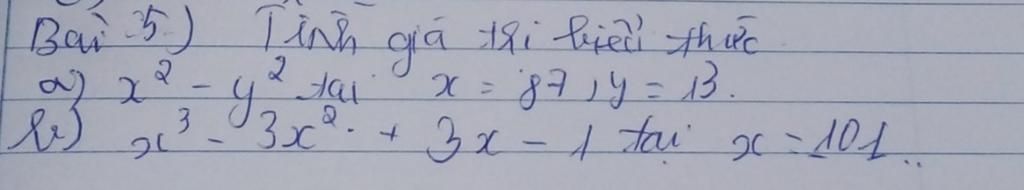 Bài 5) Tính giá trị biểu thức
a) x² - y² tại x = 87, y = 13.
b) x³ - 3x² + 3x - 1 tại x = 101..